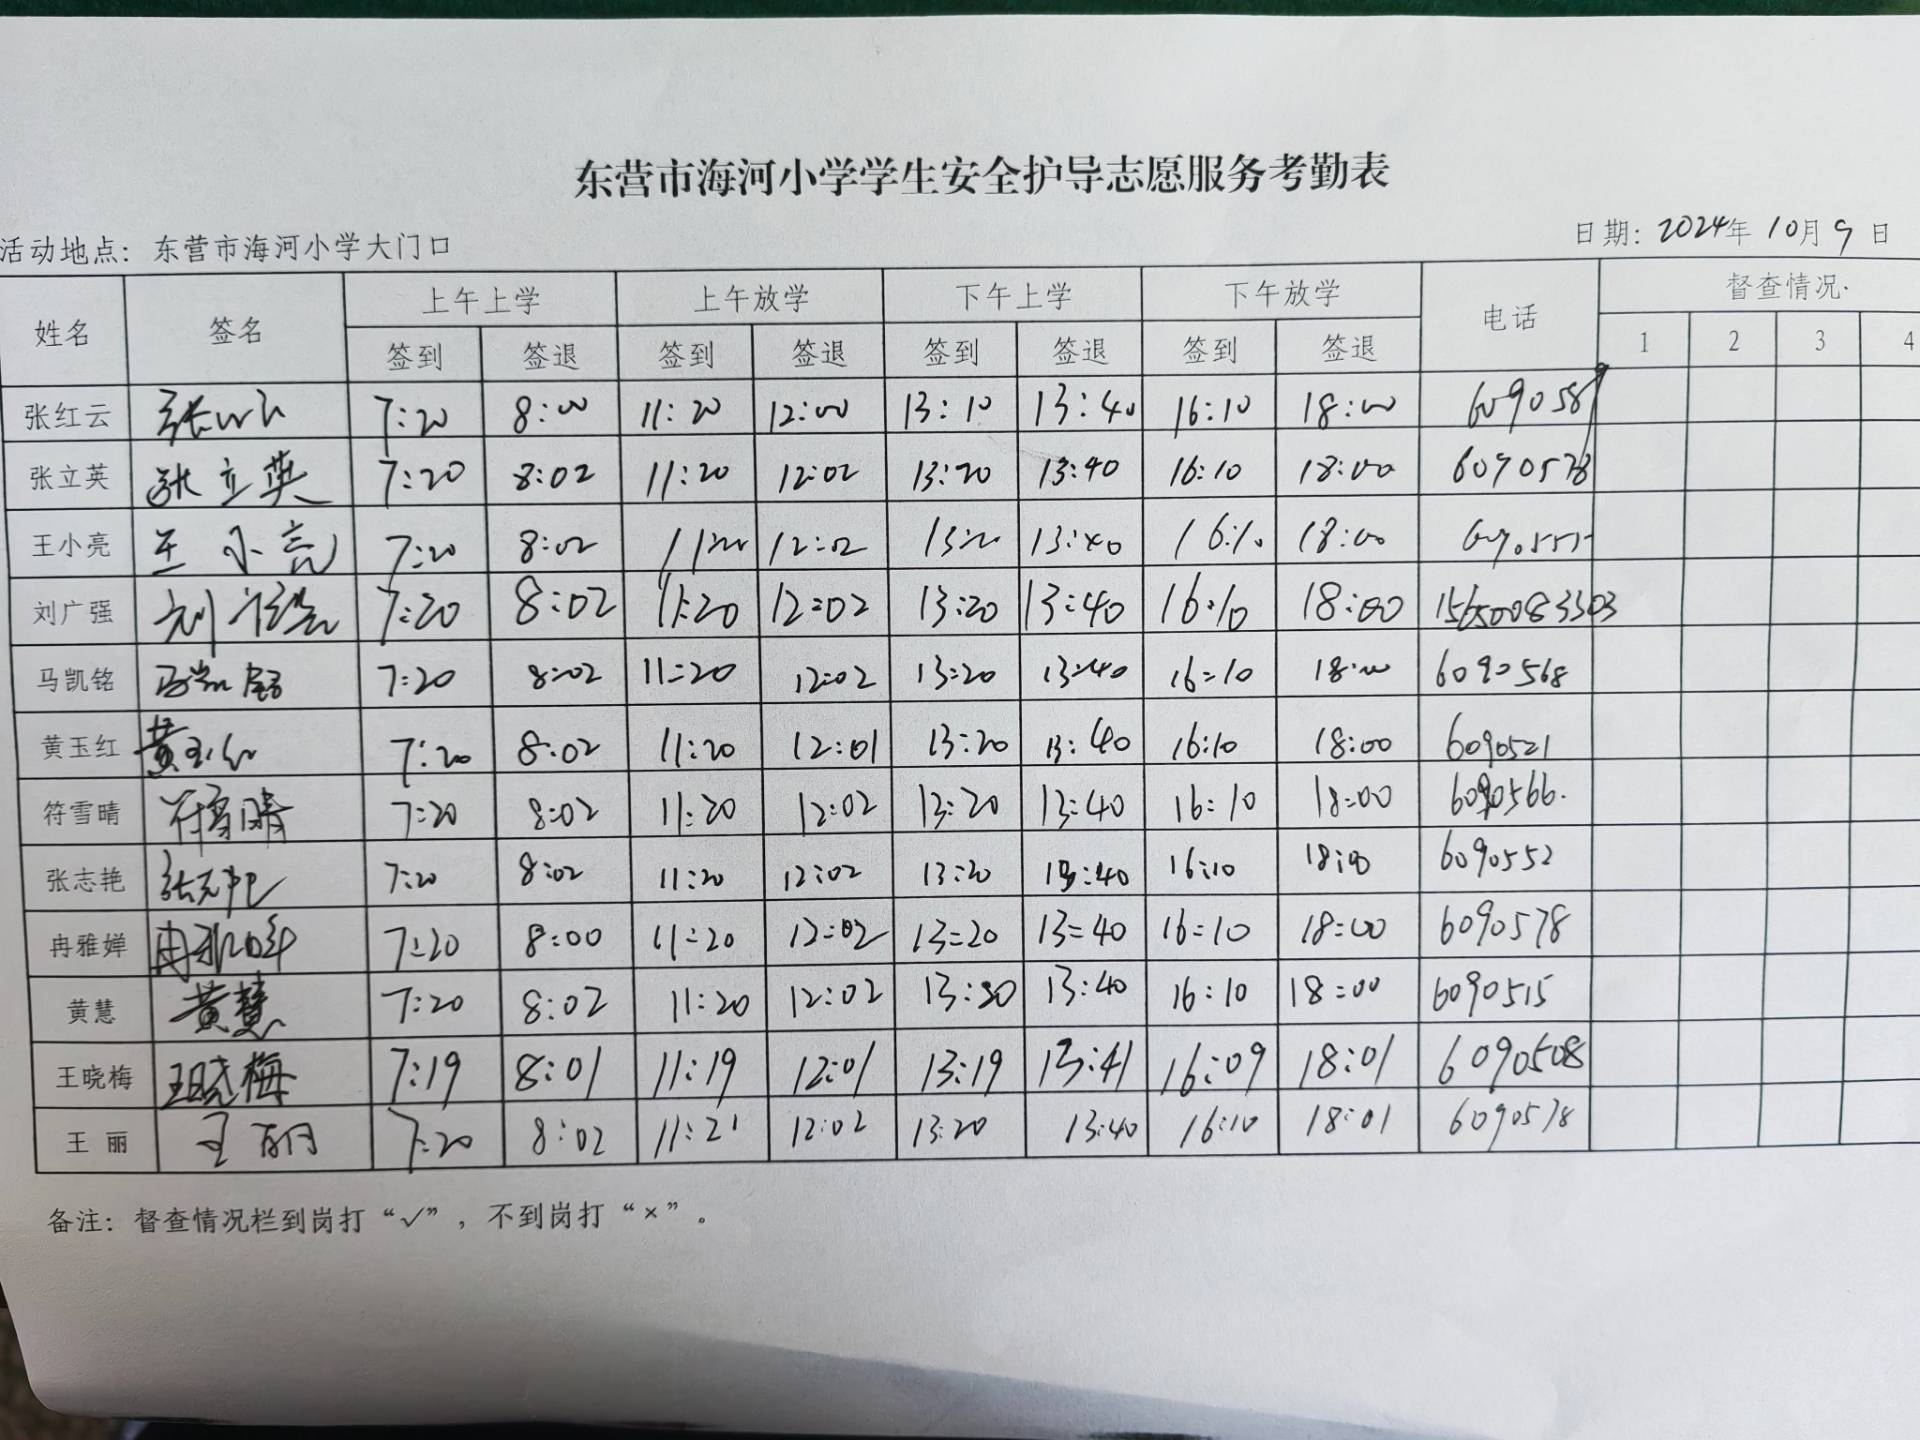 东营市海河小学学生安全护导志愿服务考勤表
活动地点：东营市海河小学大门口 日期：2024年10月9日
姓名 签名 上午上学 上午放学 下午上学 下午放学 电话 督查情况
签到 签退 签到 签退 签到 签退 签到 签退 1 2 3 4
张红云 张红云 7:20 8:00 11:20 12:00 13:10 13:40 16:10 18:00
张立英 张立英 7:20 8:02 11:20 12:02 13:20 13:40 16:10 18:00 6090578
王小亮 王小亮 7:20 8:02 11:20 12:02 13:20 13:40 16:10 18:00
刘广强 刘广强 7:20 8:02 11:20 12:02 13:20 13:40 16:10 18:00 15650083303
马凯铭 马凯铭 7:20 8:02 11:20 12:02 13:20 13:40 16:10 18:00 6090568
黄玉红 黄玉红 7:20 8:02 11:20 12:01 13:20 13:40 16:10 18:00 6090521
符雪晴 符雪晴 7:20 8:02 11:20 12:02 13:20 13:40 16:10 18:00 6090566
张志艳 张志艳 7:20 8:02 11:20 12:02 13:20 13:40 16:10 18:00 6090552
冉雅婵 冉雅婵 7:20 8:00 11:20 12:02 13:20 13:40 16:10 18:00 6090578
黄慧 黄慧 7:20 8:02 11:20 12:02 13:20 13:40 16:10 18:00 6090515
王晓梅 王晓梅 7:19 8:01 11:19 12:01 13:19 13:41 16:09 18:01 6090508
王丽 王丽 7:20 8:02 11:21 12:02 13:20 13:40 16:10 18:01 6090578
备注：督查情况栏到岗打“√”，不到岗打“×”。